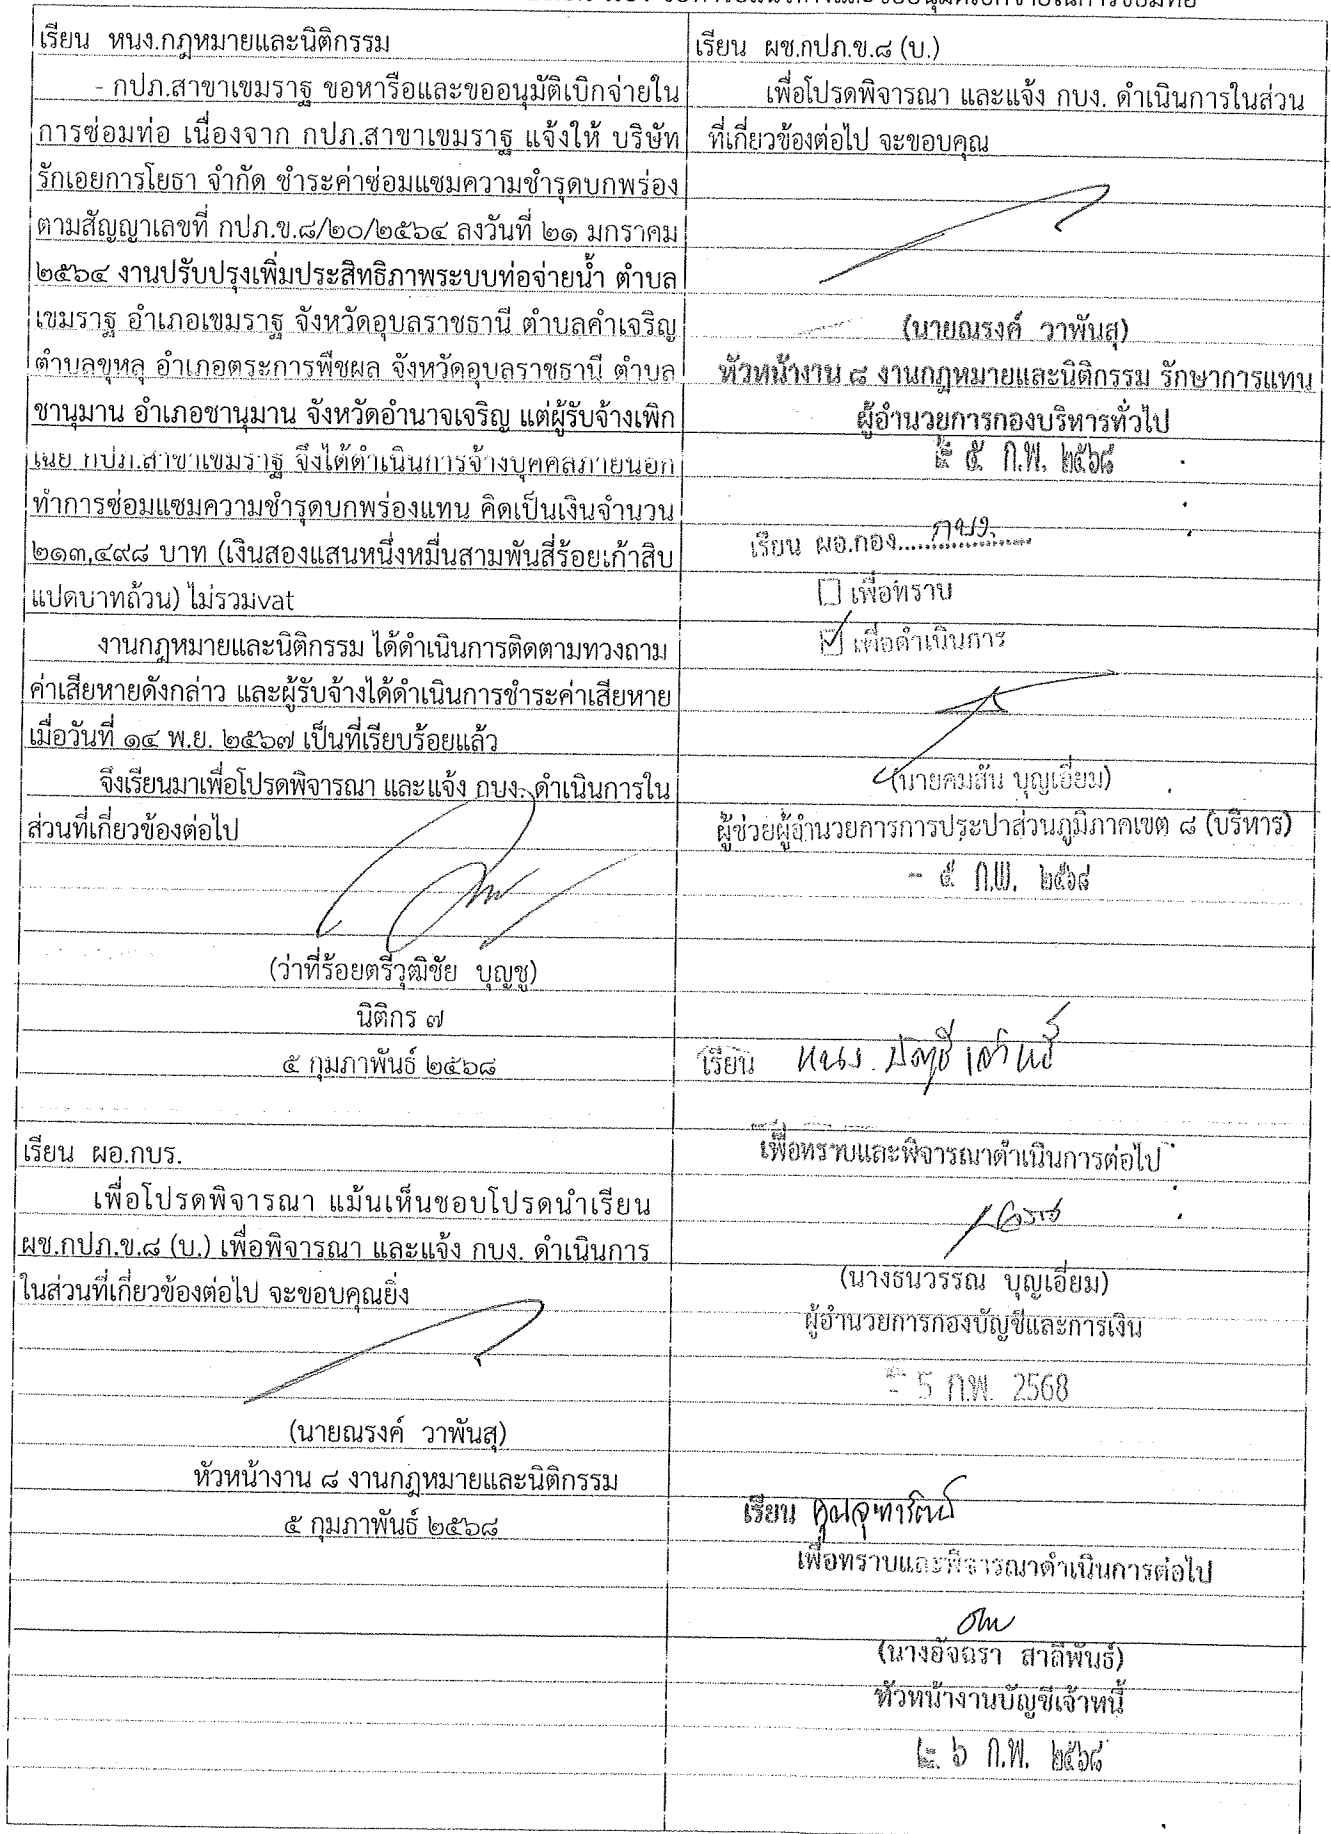 เรียน หนง.กฎหมายและนิติกรรม
- กปภ.สาขาเขมราฐ ขอหารือและขออนุมัติเบิกจ่ายใน
การซ่อมท่อ เนื่องจาก กปภ.สาขาเขมราฐ แจ้งให้ บริษัท
รักเอยการโยธา จำกัด ชำระค่าซ่อมแซมความชำรุดบกพร่อง
ตามสัญญาเลขที่ กปภ.ข.๘/๒๐/๒๕๖๔ ลงวันที่ ๒๑ มกราคม
๒๕๖๔ งานปรับปรุงเพิ่มประสิทธิภาพระบบท่อจ่ายน้ำ ตำบล
เขมราฐ อำเภอเขมราฐ จังหวัดอุบลราชธานี ตำบลคำเจริญ
ตำบลขุหลุ อำเภอตระการพืชผล จังหวัดอุบลราชธานี ตำบล
ชานุมาน อำเภอชานุมาน จังหวัดอำนาจเจริญ แต่ผู้รับจ้างเพิก
เฉย กปภ.สาขาเขมราฐ จึงได้ดำเนินการจ้างบุคคลภายนอก
ทำการซ่อมแซมความชำรุดบกพร่องแทน คิดเป็นเงินจำนวน
๒๑๓,๔๙๘ บาท (เงินสองแสนหนึ่งหมื่นสามพันสี่ร้อยเก้าสิบ
แปดบาทถ้วน) ไม่รวมvat
งานกฎหมายและนิติกรรม ได้ดำเนินการติดตามทวงถาม
ค่าเสียหายดังกล่าว และผู้รับจ้างได้ดำเนินการชำระค่าเสียหาย
เมื่อวันที่ ๑๔ พ.ย. ๒๕๖๗ เป็นที่เรียบร้อยแล้ว
จึงเรียนมาเพื่อโปรดพิจารณา และแจ้ง กบง. ดำเนินการใน
ส่วนที่เกี่ยวข้องต่อไป
(ว่าที่ร้อยตรีวุฒิชัย บุญชู)
นิติกร ๗
๕ กุมภาพันธ์ ๒๕๖๘
เรียน ผอ.กบร.
เพื่อโปรดพิจารณา แม้นเห็นชอบโปรดนำเรียน
ผช.กปภ.ข.๘ (บ.) เพื่อพิจารณา และแจ้ง กบง. ดำเนินการ
ในส่วนที่เกี่ยวข้องต่อไป จะขอบคุณยิ่ง
(นายณรงค์ วาพันสุ)
หัวหน้างาน ๘ งานกฎหมายและนิติกรรม
๕ กุมภาพันธ์ ๒๕๖๘
เรียน ผช.กปภ.ข.๘ (บ.)
เพื่อโปรดพิจารณา และแจ้ง กบง. ดำเนินการในส่วน
ที่เกี่ยวข้องต่อไป จะขอบคุณ
(นายณรงค์ วาพันสุ)
หัวหน้างาน ๘ งานกฎหมายและนิติกรรม รักษาการแทน
ผู้อำนวยการกองบริหารทั่วไป
๕ ก.พ. ๒๕๖๘
เรียน ผอ.กอง.....กบง.....
☐ เพื่อทราบ
☑ เพื่อดำเนินการ
(นายคมสัน บุญเอี่ยม)
ผู้ช่วยผู้อำนวยการการประปาส่วนภูมิภาคเขต ๘ (บริหาร)
- ๕ ก.พ. ๒๕๖๘
เรียน หนง. บัญชีเจ้าหนี้
เพื่อทราบและพิจารณาดำเนินการต่อไป
(นางธนวรรณ บุญเอี่ยม)
ผู้อำนวยการกองบัญชีและการเงิน
- 5 ก.พ. 2568
เรียน คุณจุฑารัตน์
เพื่อทราบและพิจารณาดำเนินการต่อไป
(นางอัจฉรา สาลีพันธ์)
หัวหน้างานบัญชีเจ้าหนี้
๖ ก.พ. ๒๕๖๘